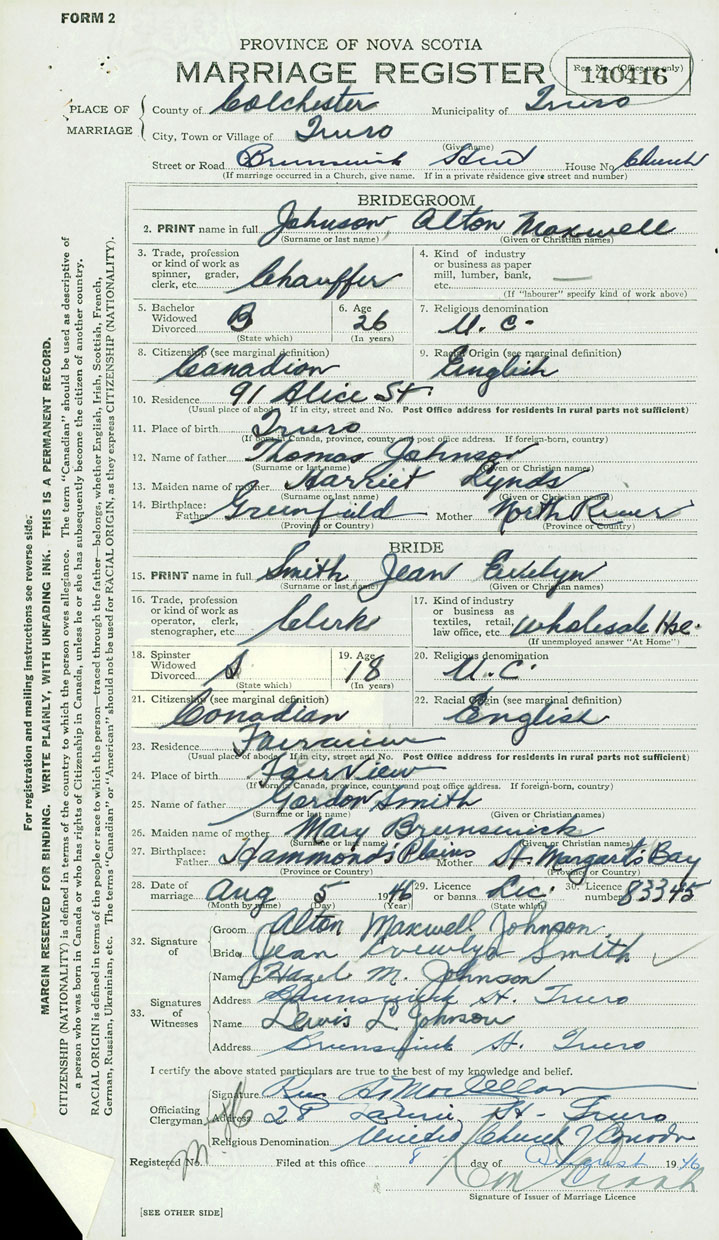 FORM 2
PROVINCE OF NOVA SCOTIA
MARRIAGE REGISTER
Reg. No. (Office use only)
140416
PLACE OF MARRIAGE
County of Colchester Municipality of Truro
City, Town or Village of Truro
(Given name)
Street or Road Brunswick Street House No. Church
(If marriage occurred in a Church, give name. If in a private residence give street and number)
BRIDEGROOM
2. PRINT name in full Johnson, Alton Maxwell
(Surname or last name) (Given or Christian names)
3. Trade, profession or kind of work as spinner, grader, clerk, etc. Chauffer
4. Kind of industry or business as paper mill, lumber, bank, etc. —
(If "labourer" specify kind of work above)
5. Bachelor Widowed Divorced B (State which)
6. Age 26 (In years)
7. Religious denomination U. C.
8. Citizenship (see marginal definition) Canadian
9. Racial Origin (see marginal definition) English
10. Residence 91 Alice St.
(Usual place of abode. If in city, street and No. Post Office address for residents in rural parts not sufficient)
11. Place of birth Truro
(If born in Canada, province, county and post office address. If foreign-born, country)
12. Name of father Thomas Johnson
(Surname or last name) (Given or Christian names)
13. Maiden name of mother Harriet Lynds
(Surname or last name) (Given or Christian names)
14. Birthplace: Father Greenfield Mother North River
(Province or Country) (Province or Country)
BRIDE
15. PRINT name in full Smith Jean Evelyn
(Surname or last name) (Given or Christian names)
16. Trade, profession or kind of work as operator, clerk, stenographer, etc. Clerk
17. Kind of industry or business as textiles, retail, law office, etc. Wholesale Hse.
(If unemployed answer "At Home")
18. Spinster Widowed Divorced S (State which)
19. Age 18 (In years)
20. Religious denomination U.C.
21. Citizenship (see marginal definition) Canadian
22. Racial Origin (see marginal definition) English
23. Residence Fairview
(Usual place of abode. If in city, street and No. Post Office address for residents in rural parts not sufficient)
24. Place of birth Fairview
(If born in Canada, province, county and post office address. If foreign-born, country)
25. Name of father Gordon Smith
(Surname or last name) (Given or Christian names)
26. Maiden name of mother Mary Brunswick
(Surname or last name) (Given or Christian names)
27. Birthplace: Father Hammonds Plains Mother St. Margarts Bay
(Province or Country) (Province or Country)
28. Date of marriage Aug 5 1946
(Month by name) (Day) (Year)
29. Licence or banns Lic. (State which)
30. Licence number 83345
32. Signature of
Groom Alton Maxwell Johnson
Bride Jean Evewlyn Smith
33. Signatures of Witnesses
Name Hazel M. Johnson
Address Brunswick St. Truro
Name Lewis L Johnson
Address Brunswick St. Truro
I certify the above stated particulars are true to the best of my knowledge and belief.
Officiating Clergyman
Signature Rev
Address 28 St. Truro
Religious Denomination United Church of Canada
Registered No. Filed at this office 8 day of August 1946
Signature of Issuer of Marriage Licence
[SEE OTHER SIDE]
For registration and mailing instructions see reverse side.
MARGIN RESERVED FOR BINDING. WRITE PLAINLY, WITH UNFADING INK. THIS IS A PERMANENT RECORD.
CITIZENSHIP (NATIONALITY) is defined in terms of the country to which the person owes allegiance. The term "Canadian" should be used as descriptive of
a person who was born in Canada or who has rights of Citizenship in Canada, unless he or she has subsequently become the citizen of another country.
RACIAL ORIGIN is defined in terms of the people or race to which the person—traced through the father—belongs, whether English, Irish, Scottish, French,
German, Russian, Ukrainian, etc. The terms "Canadian" or "American" should not be used for RACIAL ORIGIN, as they express CITIZENSHIP (NATIONALITY).